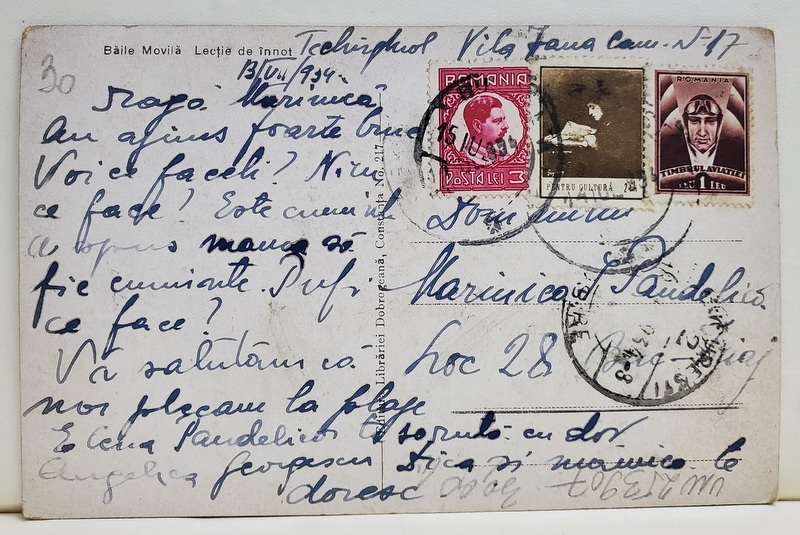 Băile Movilă Lecție de înnot
Techirghiol Vila Jana Cam. N-17
13/VII/934
30
Dragă Marinică
Am ajuns foarte bine
Voi ce faceți? Ninu
ce face? Este cuminte
a spus mama să
fie cuminte. Pufi
ce face?
Vă salutăm că
noi plecam la plaje
Elena Pandelică
Angelica Georgescu
te sărută cu dor
Dica si mămica te
doresc
ROMANIA
POSTA LEI 3
15 IUL 934
PENTRU CULTURĂ
ROMANIA
TIMBRUL AVIATIEI
LEU 1 LEU
Domnului
Marinica Pandelică
Loc 28
Editura Librăriei Dobrogeană, Constanța No. 217
BUCUREȘTI
934-8
VAN 253907